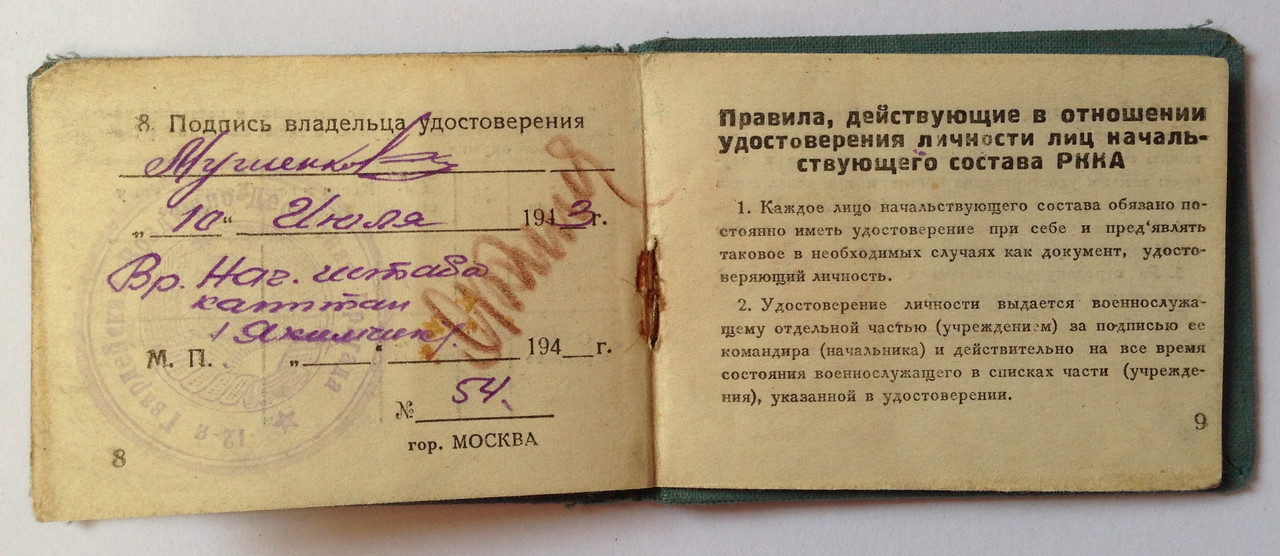 8. Подпись владельца удостоверения
Мушенков
„10" Июля 1943г.
Вр. Нач. штаба
капитан
/Якимчик/.
М. П. „ " 194 г.
№ 54.
гор. МОСКВА
8
12-я Гвардейска
Правила, действующие в отношении
удостоверения личности лиц началь-
ствующего состава РККА
1. Каждое лицо начальствующего состава обязано по-
стоянно иметь удостоверение при себе и пред‘являть
таковое в необходимых случаях как документ, удосто-
веряющий личность.
2. Удостоверение личности выдается военнослужа-
щему отдельной частью (учреждением) за подписью ее
командира (начальника) и действительно на все время
состояния военнослужащего в списках части (учрежде-
ния), указанной в удостоверении.
9